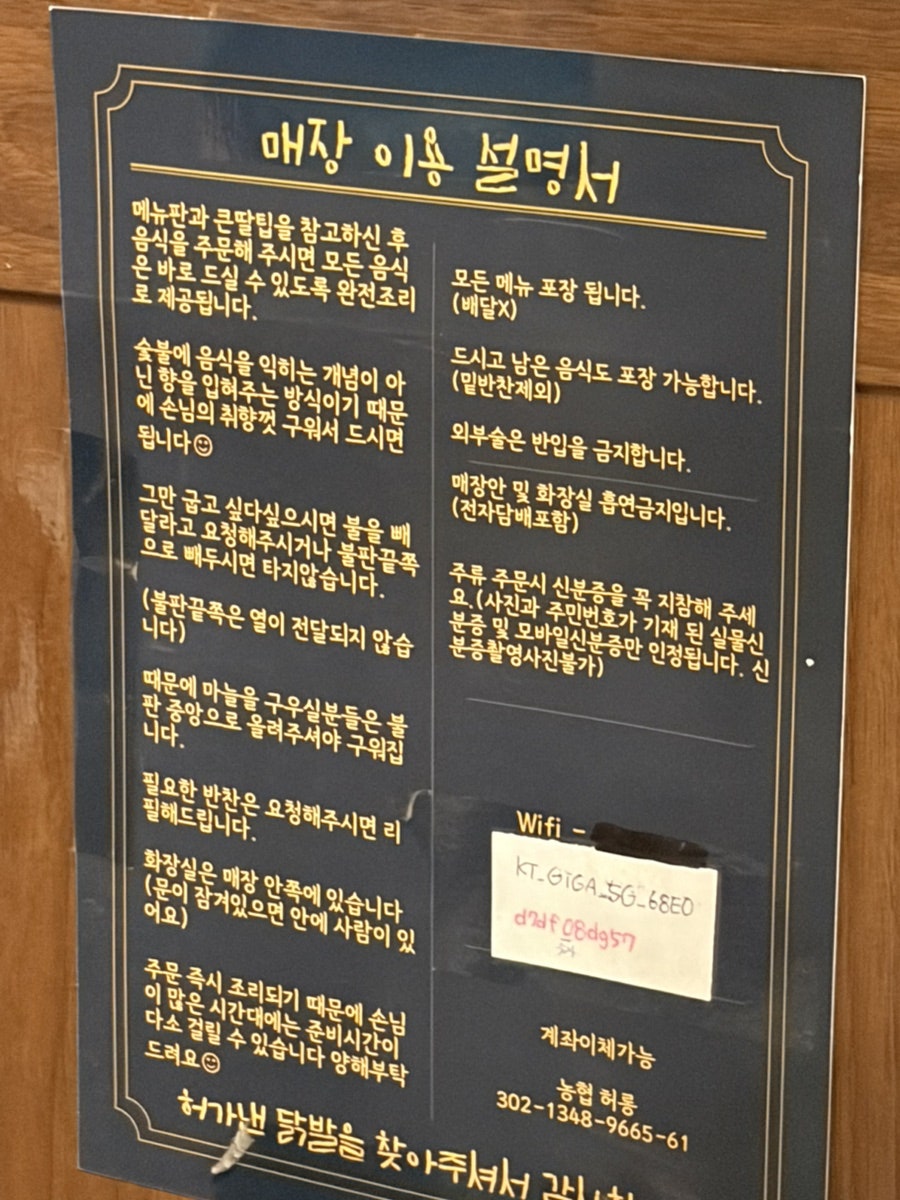 매장 이용 설명서
메뉴판과 큰딸팁을 참고하신 후
음식을 주문해 주시면 모든 음식
은 바로 드실 수 있도록 완전조리
로 제공됩니다.
숯불에 음식을 익히는 개념이 아
닌 향을 입혀주는 방식이기 때문
에 손님의 취향껏 구워서 드시면
됩니다
그만 굽고 싶다싶으시면 불을 빼
달라고 요청해주시거나 불판끝쪽
으로 빼두시면 타지않습니다.
(불판끝쪽은 열이 전달되지 않습
니다)
때문에 마늘을 구우실분들은 불
판 중앙으로 올려주셔야 구워집
니다.
필요한 반찬은 요청해주시면 리
필해드립니다.
화장실은 매장 안쪽에 있습니다
(문이 잠겨있으면 안에 사람이 있
어요)
주문 즉시 조리되기 때문에 손님
이 많은 시간대에는 준비시간이
다소 걸릴 수 있습니다 양해부탁
드려요
모든 메뉴 포장 됩니다.
(배달X)
드시고 남은 음식도 포장 가능합니다.
(밑반찬제외)
외부술은 반입을 금지합니다.
매장안 및 화장실 흡연금지입니다.
(전자담배포함)
주류 주문시 신분증을 꼭 지참해 주세
요.(사진과 주민번호가 기재 된 실물신
분증 및 모바일신분증만 인정됩니다. 신
분증촬영사진불가)
Wifi -
KT_GiGA_5G_68E0
d7df08dg57
숫자
계좌이체가능
농협 허롱
302-1348-9665-61
허가낸 닭발을 찾아주셔서